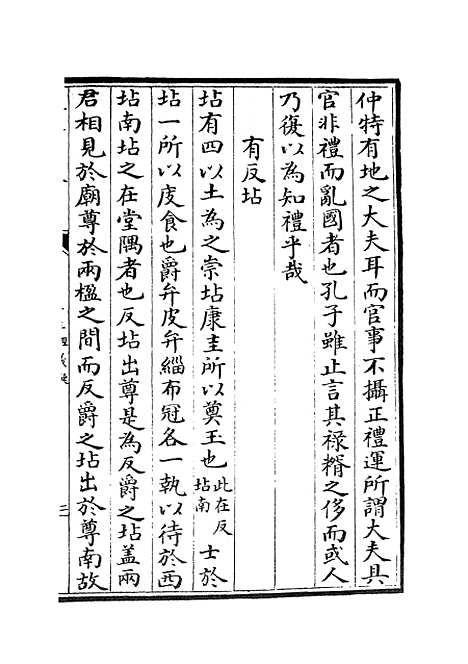 仲特有地之大夫耳而官事不攝正禮運所謂大夫具
官非禮而亂國者也孔子雖止言其祿糈之侈而或人
乃復以為知禮乎哉
有反坫
坫有四以土為之崇坫康圭所以奠玉也此在反坫南士於
坫一所以庋食也爵弁皮弁緇布冠各一執以待於西
坫南坫之在堂隅者也反坫出尊是為反爵之坫蓋兩
君相見於廟尊於兩楹之間而反爵之坫出於尊南故
三